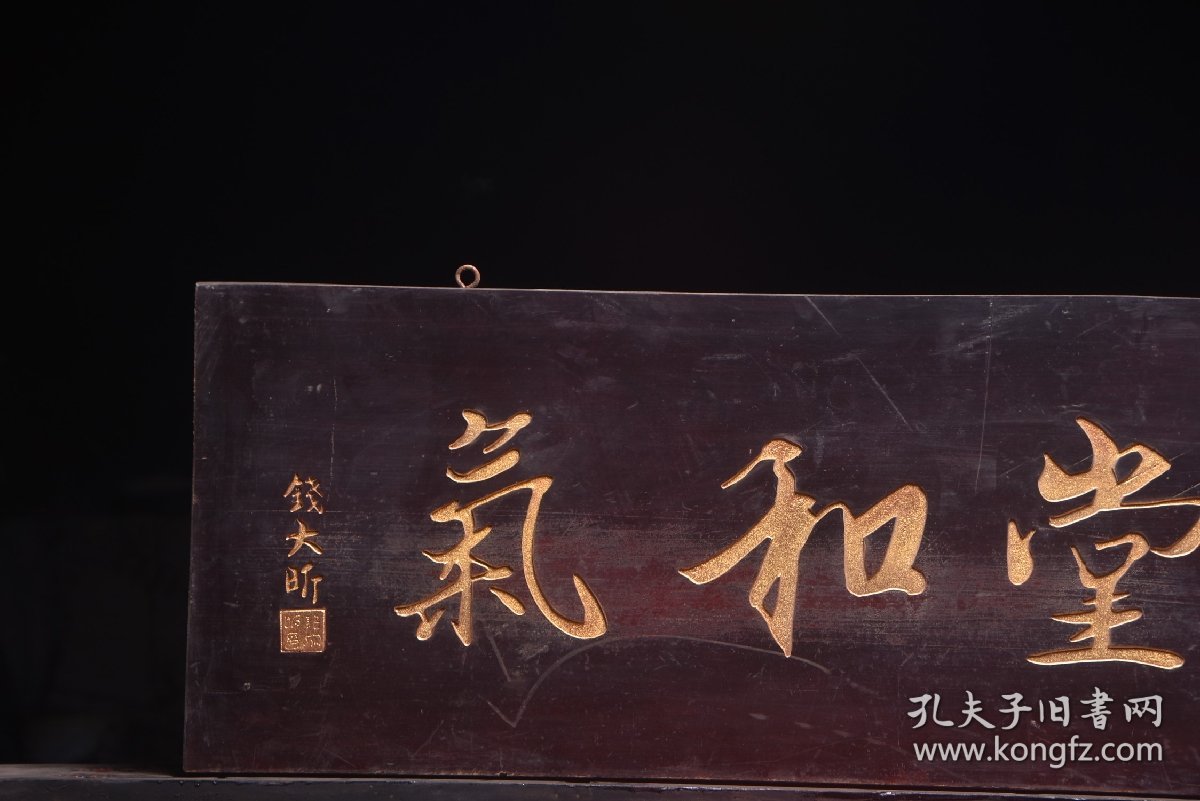 堂和氣
錢大昕
孔夫子旧書网
www.kongfz.com